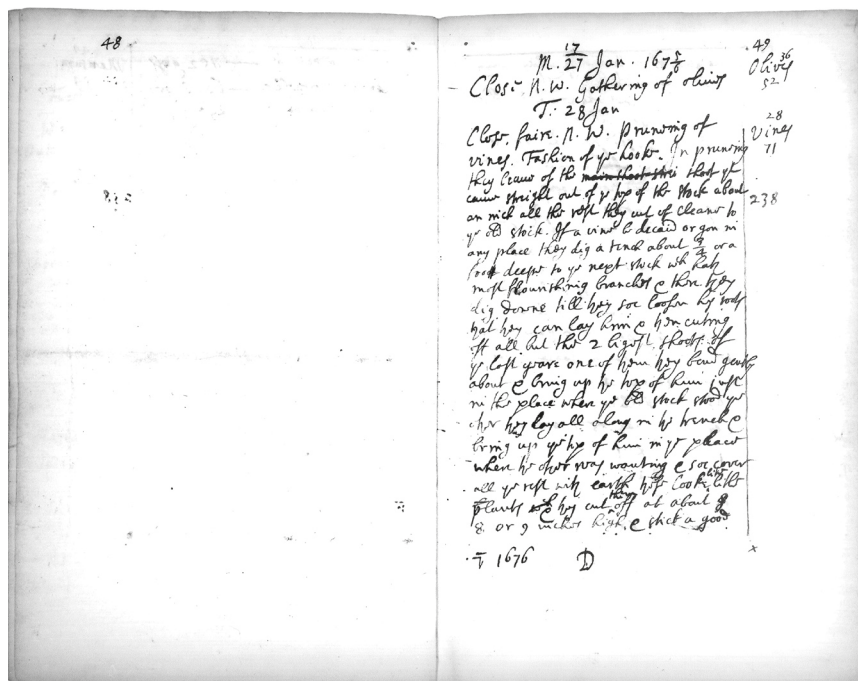 48
49
M. 17/27 Jan. 167 5/6
Olives 36
52
Close. N.W. Gathering of olives
T. 28 Jan
28
Close faire. N.W. Pruneing of
Vines
vines. Fashion of ye hooke. In pruneing
71
they leave of the main shoot shoot yt
came streight out of ye top of the stock about
238
an inch all the rest they cut of cleane to
ye old stock. If a vine be decaid or gon in
any place they dig a trench about 3/4 or a
foot deeper to ye next stock wch hath
most flourishing branches & there they
dig downe till they soe loosen the roots
that they can lay him & then cuting
off all but the 2 bigest shoots of
ye last yeare one of them they bend gently
about & bring up the top of him just
in the place where ye old stock stood ye
other they lay all along in the trench &
bring up ye top of him in ye place
where the other was wanting & soe cover
all ye rest with earth these looke like
plants & they cut them off at about
8 or 9 inches high & stick a good
T 1676 D
x